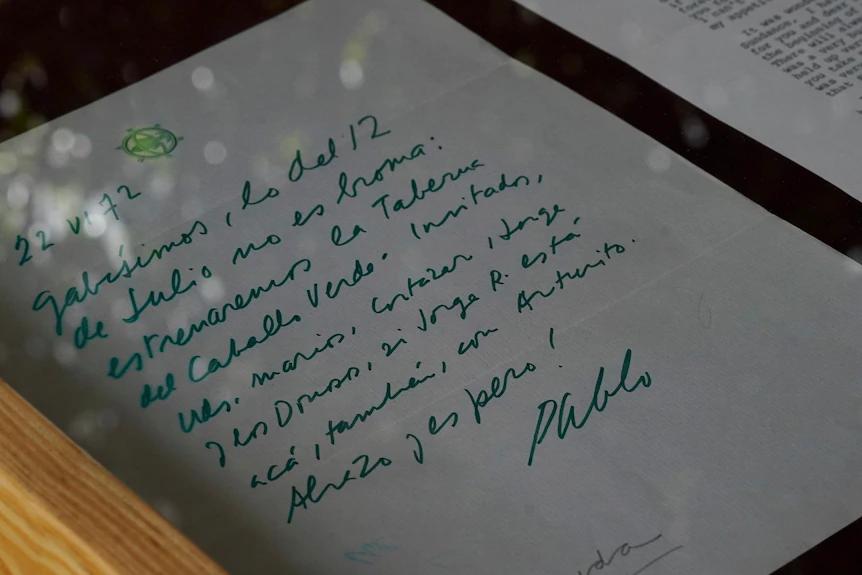 22 VI 72
Gabísimos, lo del 12
de Julio no es broma:
estrenaremos la Taberna
del Caballo Verde. Invitados,
Uds. marios, Cortazar, Jorge
y los Donoso, si Jorge R. está
acá, también, con Arturito.
Abrazo y espero!
Pablo
It was wond
Sundance,
for you and mer
the beginning o
There will
was a very
held up ver
You take
was very
that
my appetit